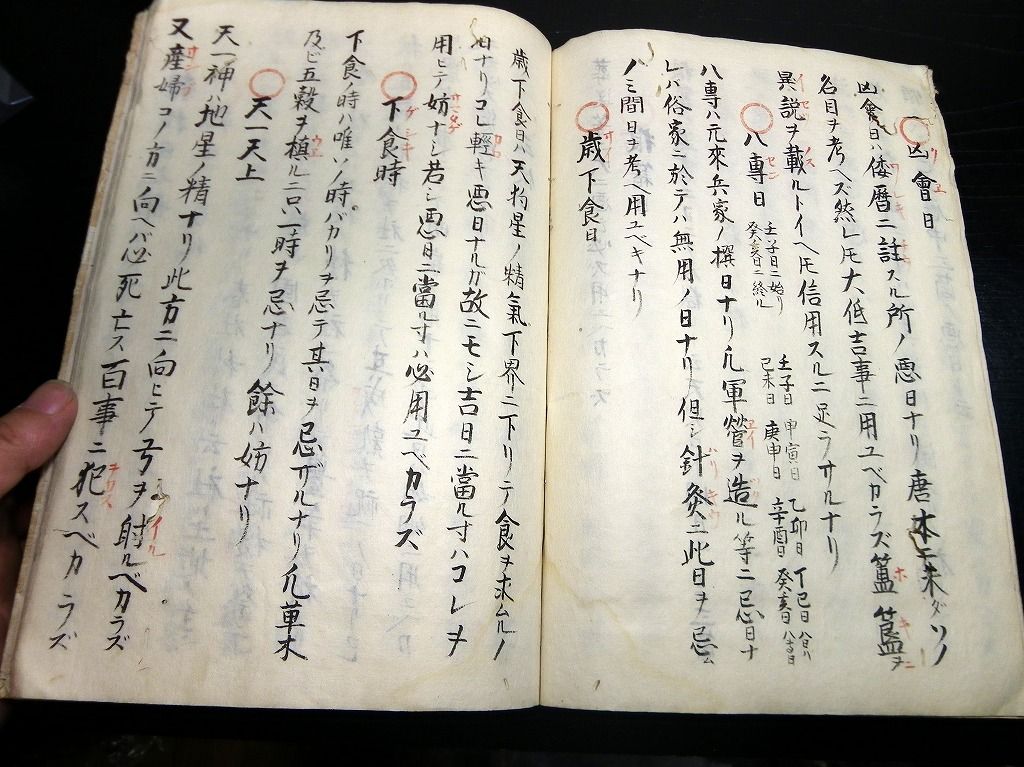 凶會日
凶會日ハ倭暦ニ註スル所ノ悪日ナリ唐本モ未ダソノ
名目ヲ考ヘズ然レ𪜈大低吉事ニ用ユベカラズ簠簋ヲ
異説ヲ載ルトイヘ𪜈信用スルニ足ラサルナリ
八専日 壬子日ニ始リ 癸亥日ニ終ル
壬子日 甲寅日 乙卯日 丁巳日
己未日 庚申日 辛酉日 癸亥日
八専ハ元來兵家ノ撰日ナリ凡軍營ヲ造ル等ニ忌日ナ
レバ俗家ニ於テハ無用ノ日ナリ但シ針灸ニ此日ヲ忌ム
ノミ間日ヲ考ヘ用ユベキナリ
歳下食日
歳下食日ハ天狗星ノ精氣下界ニ下リテ食ヲホムルノ
日ナリコレ輕キ悪日ナルガ故ニモシ吉日ニ當ル寸ハコレヲ
用ヒテ妨ナシ若シ悪日ニ當ル寸ハ必用ユベカラズ
下食時
下食ノ時ハ唯ソノ時バカリヲ忌テ其日ヲ忌ザルナリ凡草木
及ビ五穀ヲ植ルニ只一時ヲ忌ナリ餘ハ妨ナリ
天一天上
天一神ハ地星ノ精ナリ此方ニ向ヒテ弓ヲ射ルベカラズ
又産婦コノ方ニ向ヘバ必死亡ス百事ニ犯スベカラズ